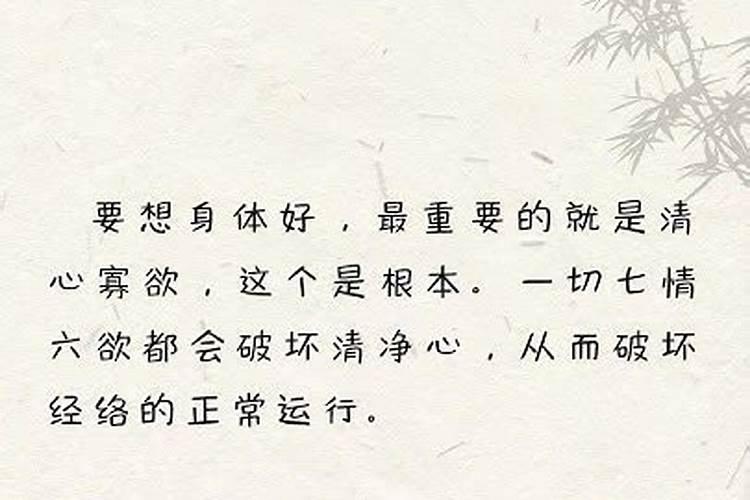 要想身体好，最重要的就是清
心寡欲，这个是根本。一切七情
六欲都会破坏清净心，从而破坏
经络的正常运行。